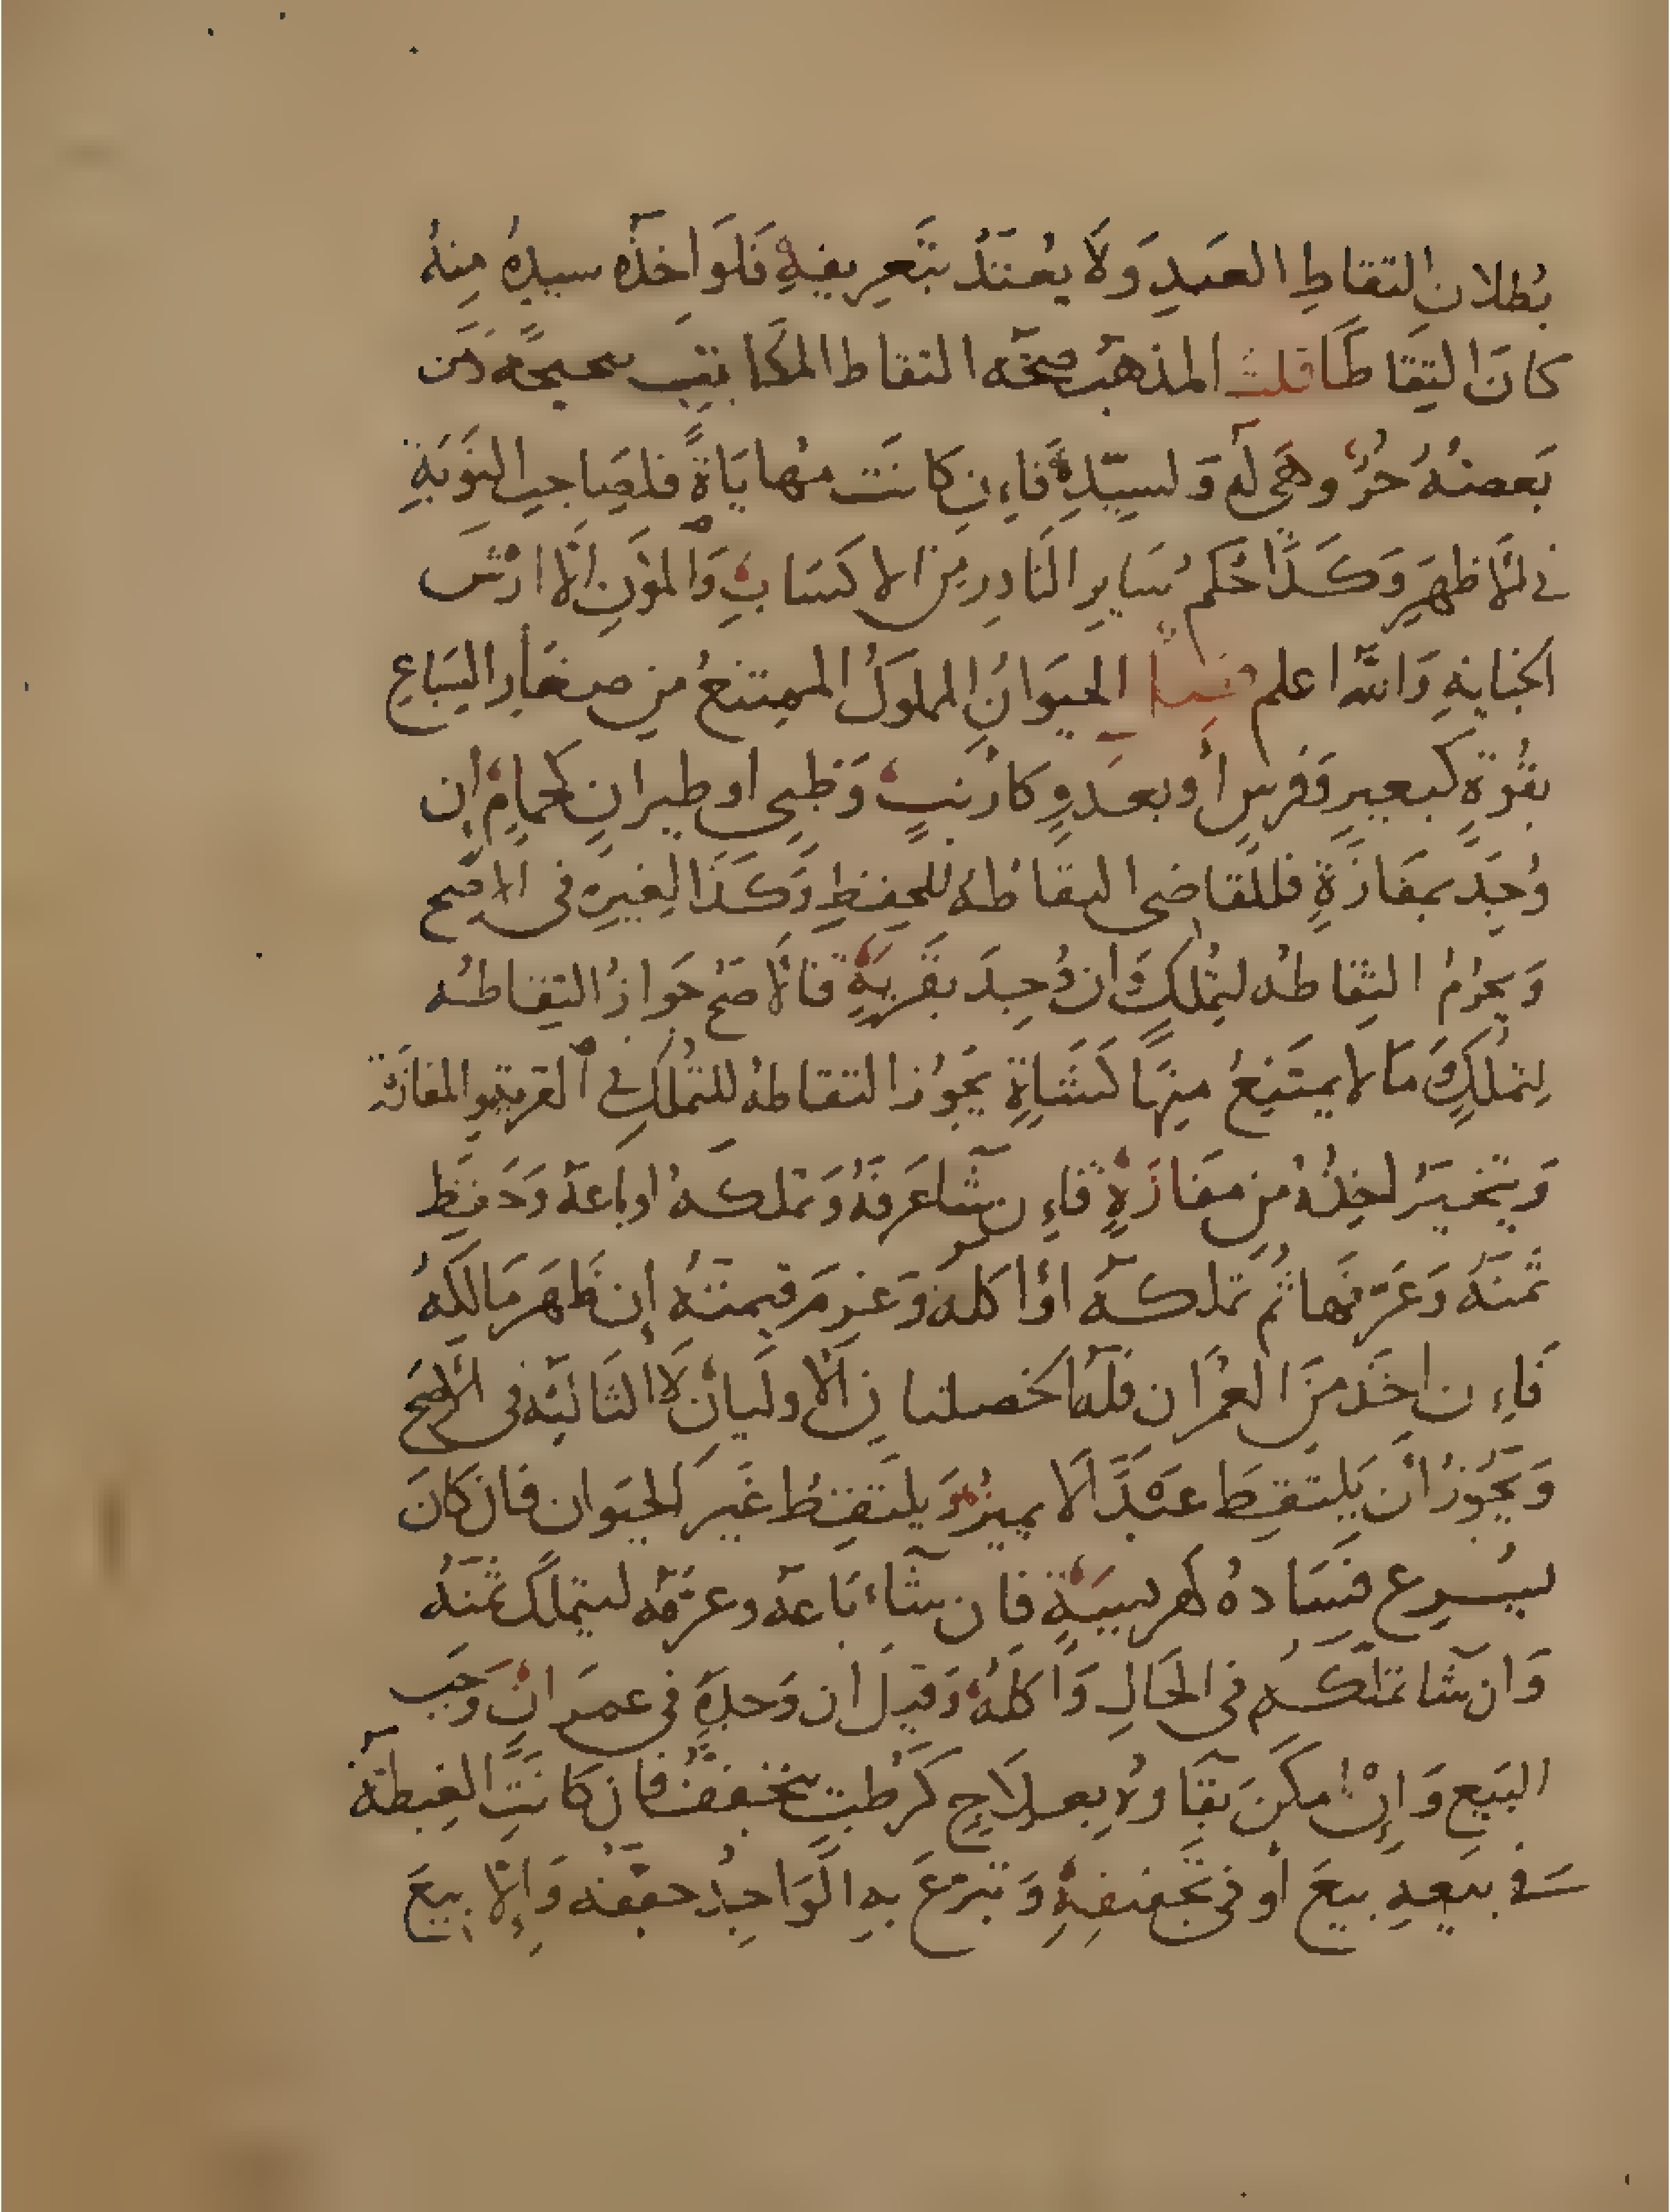 بُطلانِ التقاطِ العَبدِ وَلَا يُعتَدُّ بتَعرِيفِهِ فَلَو اَخذَه سيدِهُ مِنهُ
كانَ التِقَاطًا قلت المذهبُ صحَّه التقاط المكاتب كتابه صحيحَه ومن
بَعضُهُ حُرٌ وهَي لَه وَلسيّدِهِ فَاءِن كانَت مُهايَاةً فلِصَاحِبِ النَوبَةِ
في الاظهَرِ وَكَذَا حُكم سَايرِ النَادِرِ مِنَ الاكسَابِ وَالموَنِ اِلّا ارْشَ
الجنايةِ وَاللّه اعلم فصل الحيَوانُ المملوكُ الممتنعُ مِن صغَارِ السِبَاعِ
بقُوَّةٍ كبعيرٍ وَفرسٍ أو بعدوٍ كارنبٍ وَظبيٍ او طيرانٍ كحمامٍ إن
وُجِدَ بمفَازَةٍ فللقاضى التقاطهُ للحِفظِ وَكَذَا لِغيرِه فى الاصَح
وَيحرُمُ التِقَاطهُ لتملُّكٍ وَان وُجِدَ بقَريَةٍ فالاصَحُ جَوازُ التِقاطهُ
لِتملُّكٍ وَمَا لا يمتَنِعُ مِنهَا كشَاةٍ يَجُوزُ التقاطهُ للتملُّكِ في القريةِ والمفازَة
وَيتخيَّرُ اخِذُهُ مِن مَفَازَةٍ فَاءِن شَا عَرَفَهُ وَتملكهُ او بَاعَهُ وَحَفِظَ
ثمنَهُ وَعَرّفَها ثُم تملكهُ او اَكلهُ وَغَرِمَ قيمتَهُ إن ظَهَرَ مَالِكهُ
فَاءِن اخَذَ مِنَ العُمرَان فَلَه الخصلتانِ الاولَيانِ لَا الثالثَه فى الاصَح
وَيَجُوزُ أن يَلتَقِطَ عَبْدًا لَا يميِزُ وَيلتَقِطُ غَيرَ الحيَوان فان كانَ
يُسرِع فسَادهُ كهَريسَةٍ فان شاءَ بَاعَهُ وعرّفه ليتملكَ ثمنهُ
وَان شا تملّكهُ فى الحَالِ وَاَكلَهُ وَقيلَ ان وَجدَهُ فى عمرَانٍ وَجَب
البَيع وَإن امكَنَ بقَاوهُ بعِلَاجٍ كرُطبٍ يتجَففُ فان كانَتِ الغِبطَة
فى بيعهِ بيعَ أو فى تجفِيفِهِ وَتبرعَ بهِ الوَاجِدُ جففهُ وَإلا بيعَ